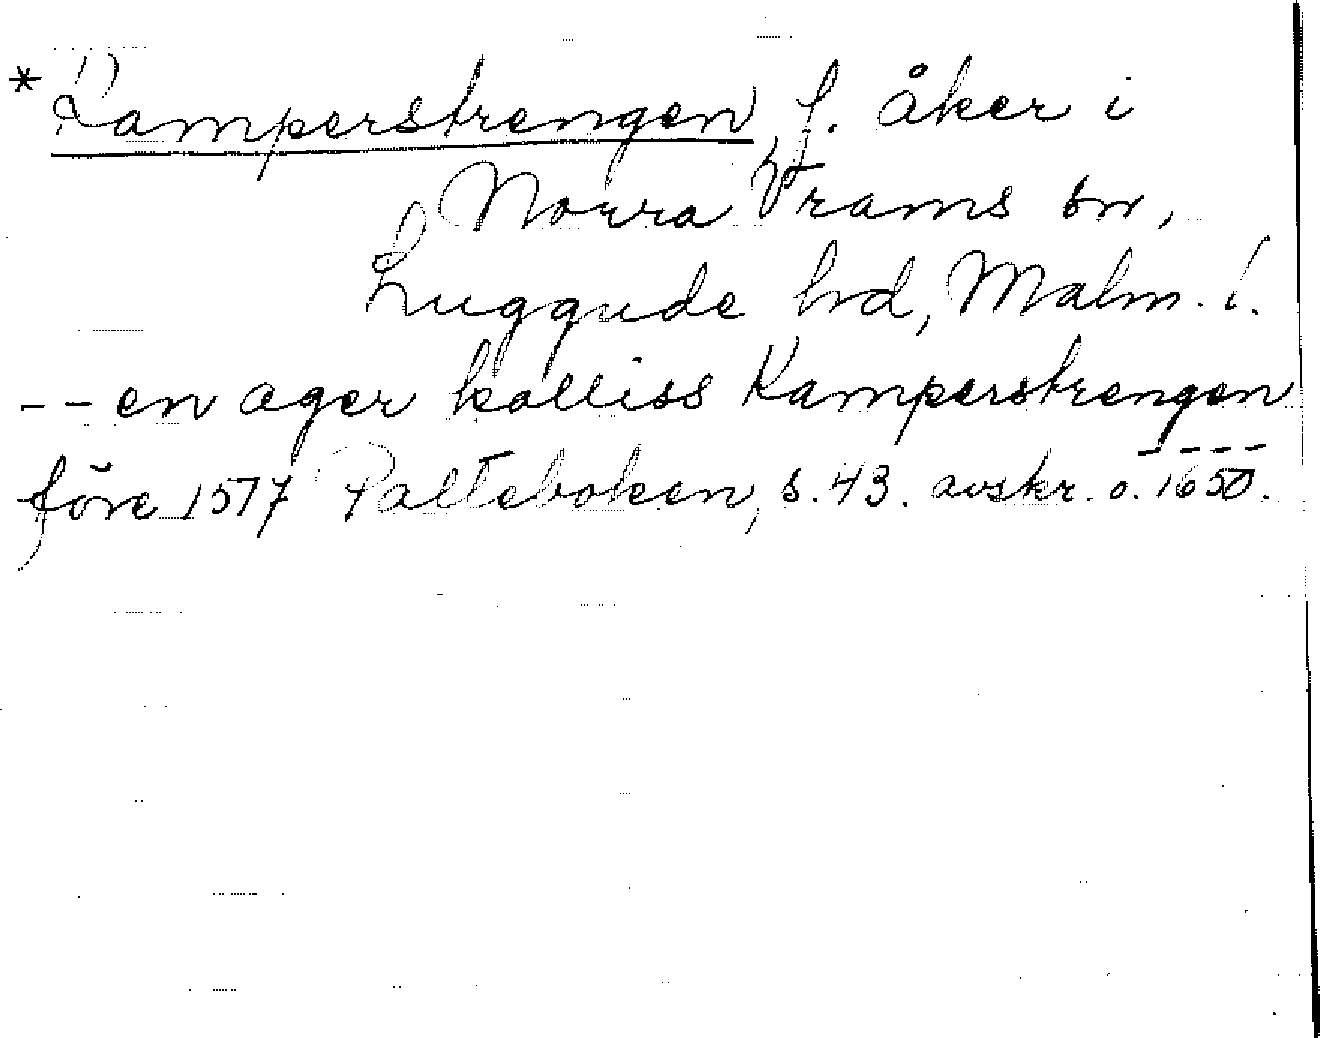 * Kamperstrengen, f. åker i
Norra Vrams sn,
Luggude hd, Malm. l.
-- en ager kalliss Kamperstrengen
----
före 1577 Palteboken, s. 43. avskr. o. 1650.